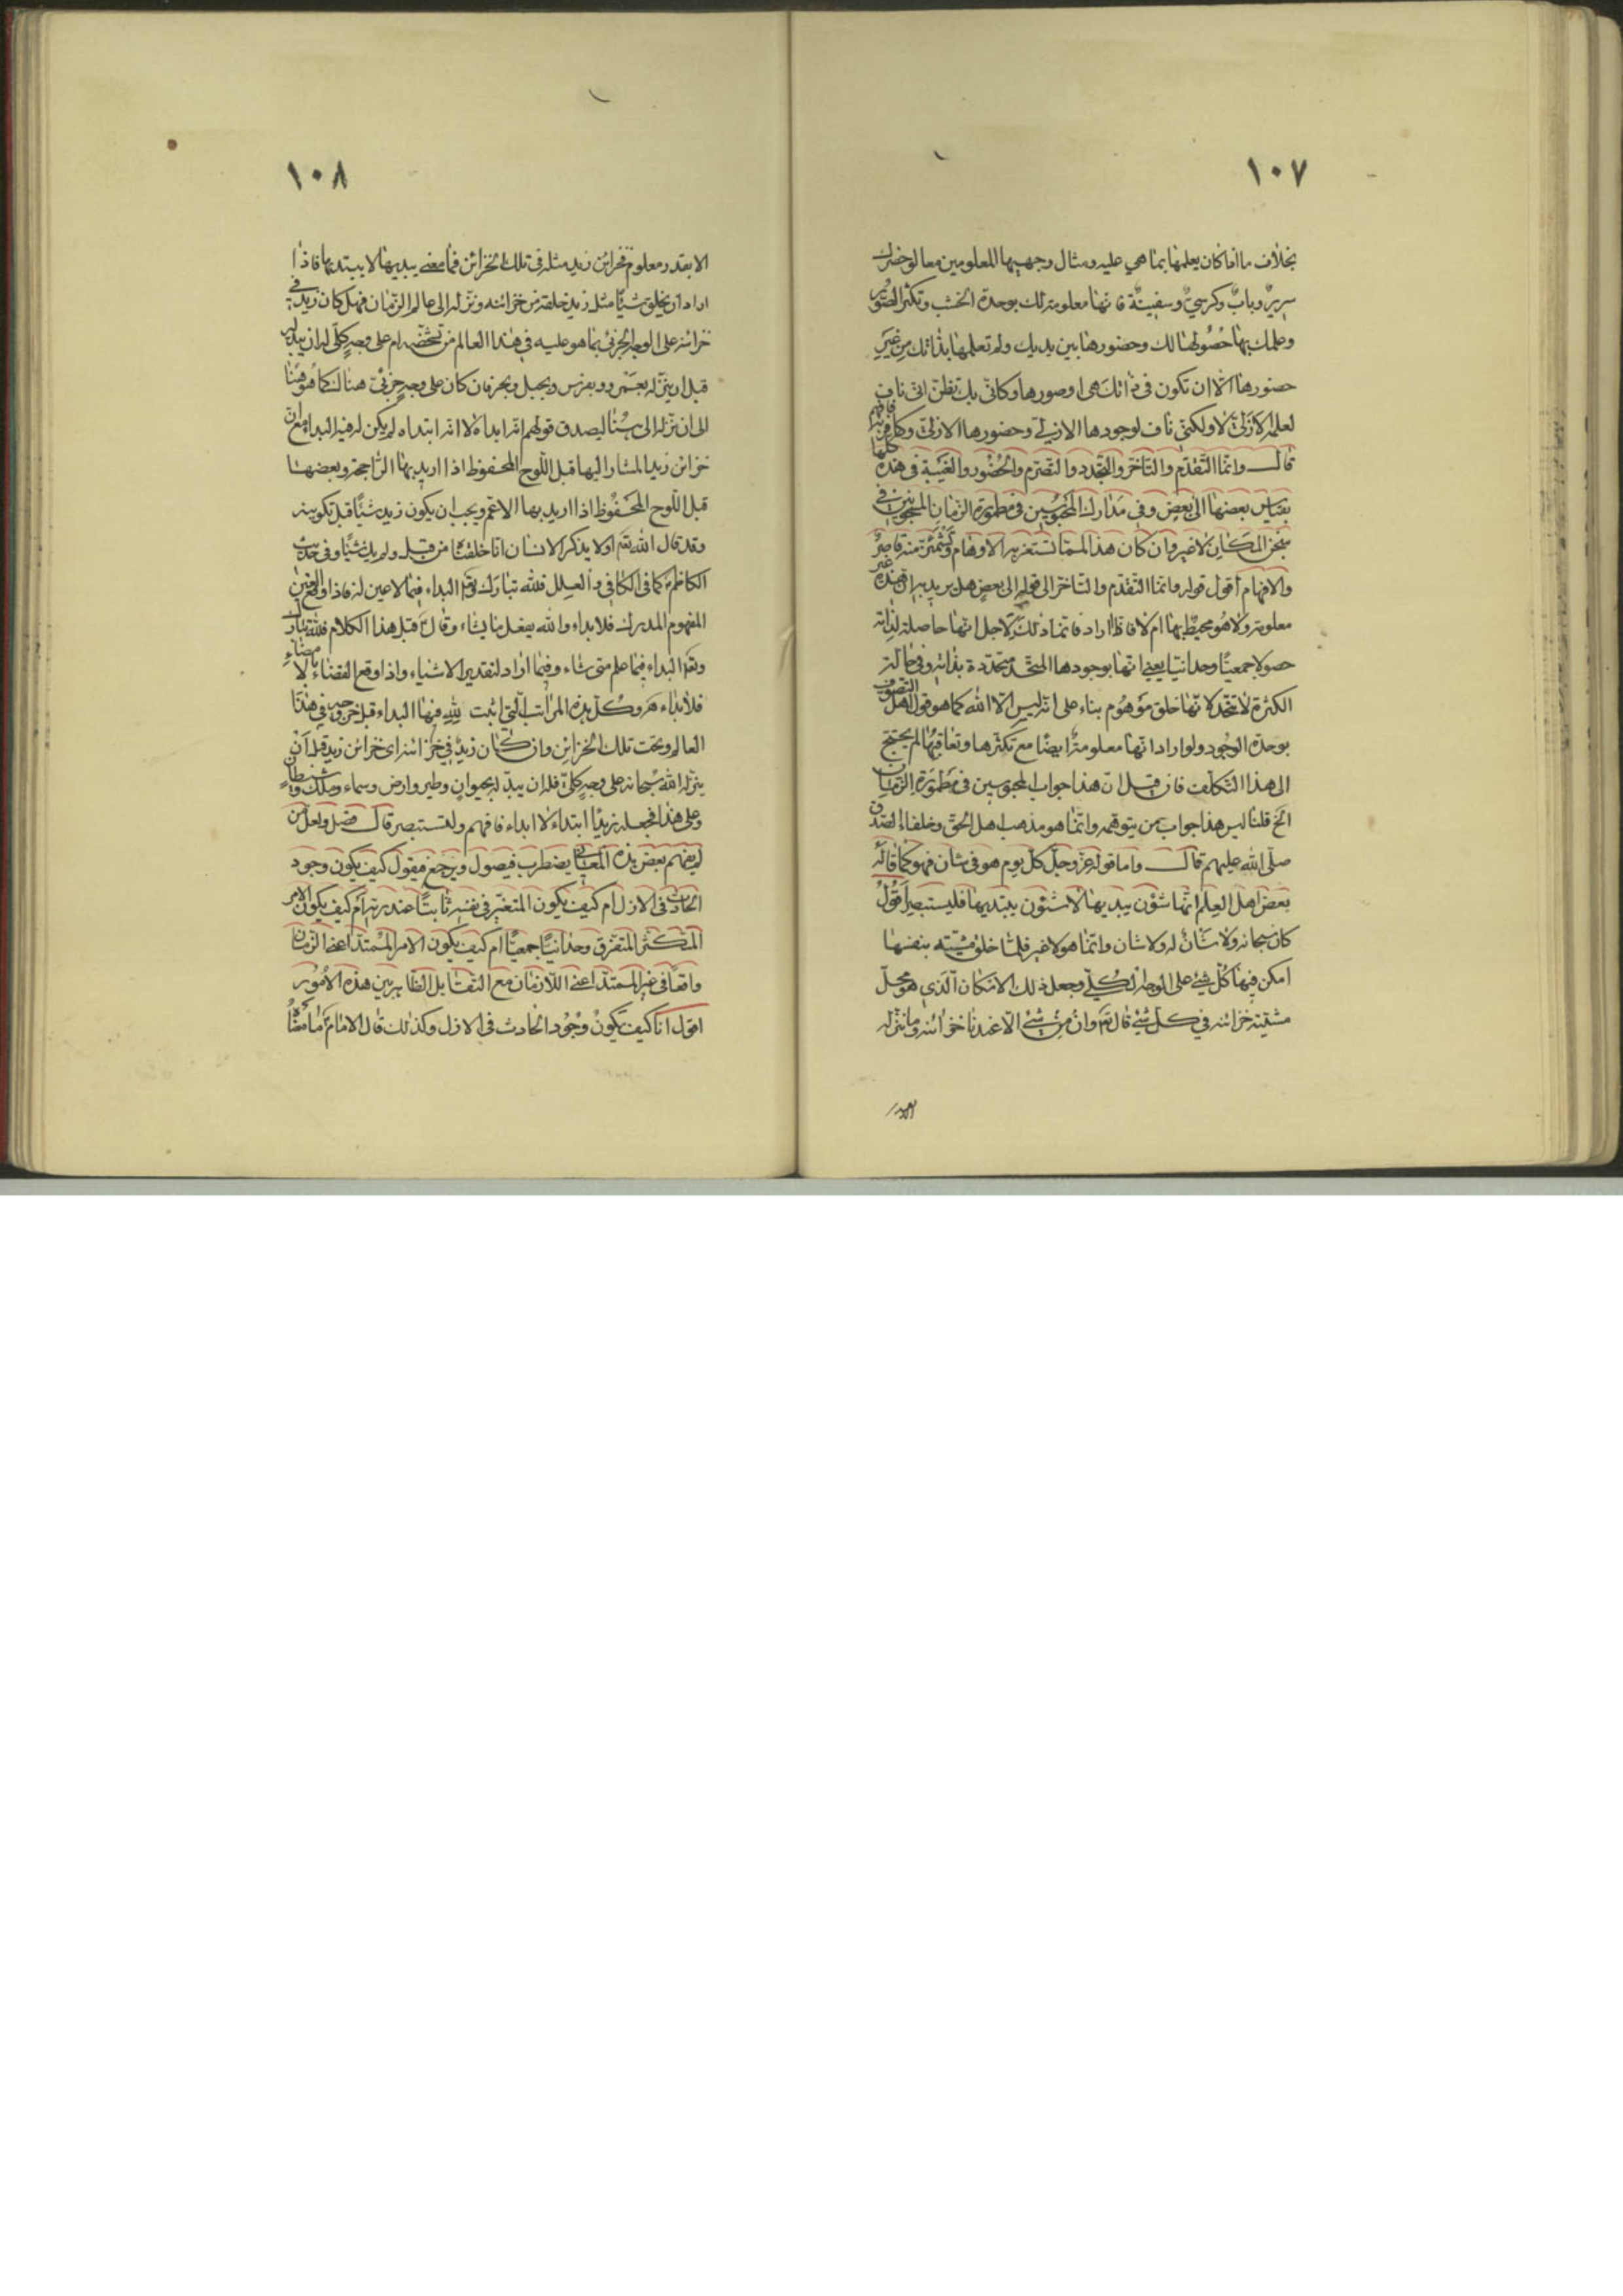 ١٠٧
بخلاف ما اذا كان يعلمها بما هي عليه ومثال وجهيها المعلومين معا لو حضرك
سريرٌ وبابٌ وكرسيٌ وسفينةٌ فانها معلومة لك بوحدة الخشب وتكثر الصور
وعلمك بها حصولها لك وحضورها بين يديك ولم تعلمها بذاتك من غير
حضورها الا ان تكون في ذاتك هي او صورها وكاني بك تظن اني ناف
لعلمه الازلي لا ولكني ناف لوجودها الازلي وحضورها الازلي فافهم
قال وانما التقدم والتاخر والتجدد والتصرم والحضور والغيبة في هذه كلها
بقياس بعضها الى بعض وفي مدارك المحبوسين في مطمورة الزمان المسجونين في
سجن المكان لا غير وان كان هذا لمما تستغربه الاوهام وتشمئز منه قاصروا
والافهام اقول قوله وانما التقدم والتاخر الى قوله الى بعض هل يريد به انها عنده غير
معلومة ولا هو محيط بها ام لا فاذا اراد فانما ذلك لاجل انها حاصلة لذاته
حصولا جمعيّا وحدانيّا يعني انها بوجودها المتحد متحددة بذاته وفي حالة
الكثرة لا تتحد لانها خلق موهوم بناء على انه ليس الا الله كما هو قول اهل التصوف
بوحدة الوجود ولو اراد انها معلومة ايضا مع تكثرها وتعاقبها لم يحتج
الى هذا التكلف فان قيل ان هذا جواب المحبوسين في مطمورة الزمان
الخ قلنا ليس هذا جواب من يتوهمه وانما هو مذهب اهل الحق وخلفاء الصدق
صلى الله عليهم قال واما قوله عز وجل كل يوم هو في شان فهو كما قاله
بعض اهل العلم انها شؤن يبديها لا شئون يبتديها فليستبصر اقول
كان سبحانه ولا شان له ولا شان وانما هو لا غير فلما خلق مشيته بنفسها
امكن فيها كل شيء على الوجه الكلي وجعل ذلك الامكان الذي هو محل
مشيته خزائنه في كل شيء قال تع وان من شيء الا عندنا خزائنه وما ننزله
١٠٨
الا بقدر معلوم فخزائن زيد مثله في تلك الخزائن فما معنى يبديها لا يبتديها فاذا
اراد ان يخلق شيئا مثل زيد خلقه من خزائنه ونزله الى عالم الزمان فهل كان زيد في
خزائنه على الوجه الجزئي بما هو عليه في هذا العالم من تشخصه ام على وجه كلي له ان يبدله
قبل ان ينزله بعمرو وبفرس وبجبل وبحر فان كان على وجه جزئي هنالك كما هو هنا
الى ان نزله الى هنا ليصدق قولهم انه ابداه لا انه ابتداه لم يكن له فيه البداء مع ان
خزائن زيد المشار اليها قبل اللوح المحفوظ اذا اريد بها الراجحة وبعضها
قبل اللوح المحفوظ اذا اريد بها الاعم ويجب ان يكون زيد شيئا قبل تكوينه
وقد قال الله تع اولا يذكر الانسان انا خلقناه من قبل ولم يك شيئا وفي حديث
الكاظم ع كما في الكافي والعلل فلله تبارك وتع البداء فيما لا عين له فاذا وقع العين
المفهوم المدرك فلا بداء والله يفعل ما يشاء وقال ع قبل هذا الكلام فلله تبارك
وتع البداء فيما علم متى شاء وفيما اراد لتقدير الاشياء واذا وقع القضاء بالامضاء
فلا بداء هـ وكل هذه المراتب التي اثبت لله فيها البداء قبل خروجه في هذا
العالم وتحت تلك الخزائن وان كان زيد في خزائنه اى خزائن زيد قبل ان
ينزله الله سبحانه على وجه كلي فله ان يبدله بحيوان وطير وارض وسماء وملك وشيطان
وعلى هذا فجعله زيدا ابتداء لا ابداء فافهم ولتستبصر قال فصل ولعل من
لم يفهم بعض هذه المعاني يضطرب فيصول ويرجع فيقول كيف يكون وجود
الحادث في الازل ام كيف يكون المتغير في نفسه ثابتا عند ربه ام كيف يكون الامر
المتكثر المتفرق وحدانيا جمعيا ام كيف يكون الامر الممتد اعني الزمان
واقعا في غير الممتد اعني اللازمان مع التقابل الظاهر بين هذه الامور
اقول انا كيف يكون وجود الحادث في الازل وكذلك قال الامام